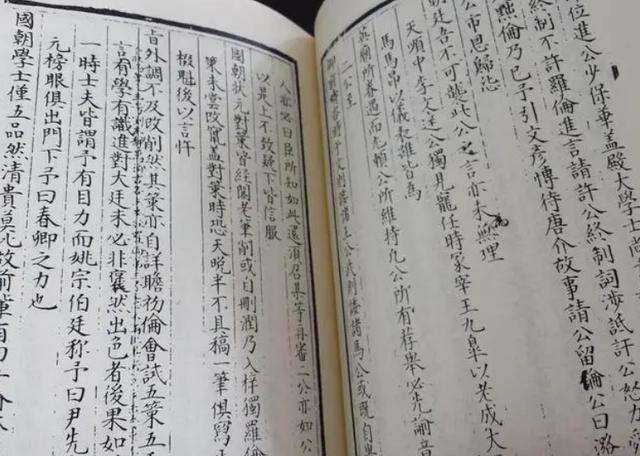 位進公少保華蓋殿大學士
終制不許羅倫進言請許公終制詞涉詆訐公怒
倫乃已予引文彥博待唐介故事請公留倫公曰潞
公市恩歸怨
朝廷吾不可襲此公之言亦未為無理
天順中李文達公獨見寵任時冢宰王九臯以老成大
馬馬昂以儀表雄皆為
英廟所眷遇而允賴公所維持九公所有薦舉必先諭音
二公至
人曰臣所知如此還須召某等再審二公亦如公
以是上不致疑下皆信服
國朝狀元對策皆經閣老筆削或自刪潤乃入梓獨羅倫
策未嘗改竄蓋對策時恐天晚半不具稿一筆俱寫
後以言忤
旨外調不及改削然其策亦自詳贍初倫會試五策五
言有學有識進對大廷未必非裒然出色者後果如
一時士夫皆謂予有目力而姚宗伯廷稱予曰尹先
元榜眼俱出門下予曰春卿之力也
國朝學士僅五品然清貴莫比故前輩有